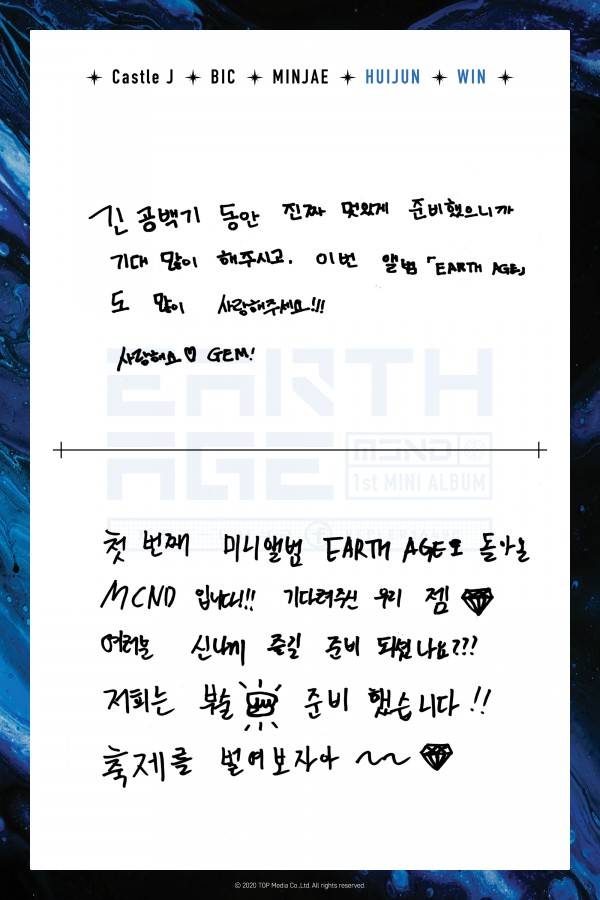 Castle J BIC MINJAE HUIJUN WIN
긴 공백기 동안 진짜 멋있게 준비했으니까
기대 많이 해주시고. 이번 앨범 「EARTH AGE」
도 많이 사랑해주세요!!!
사랑해요♡ GEM!
EARTH
AGE MCND
1st MINI ALBUM
첫 번째 미니앨범 EARTH AGE로 돌아올
MCND 입니다!! 기다려주신 우리 젬
여러분 신나게 즐길 준비 되셨나요???
저희는 부술 준비 했습니다!!
축제를 벌여보자아 ~~
© 2020 TOP Media Co.,Ltd. All rights reserved.